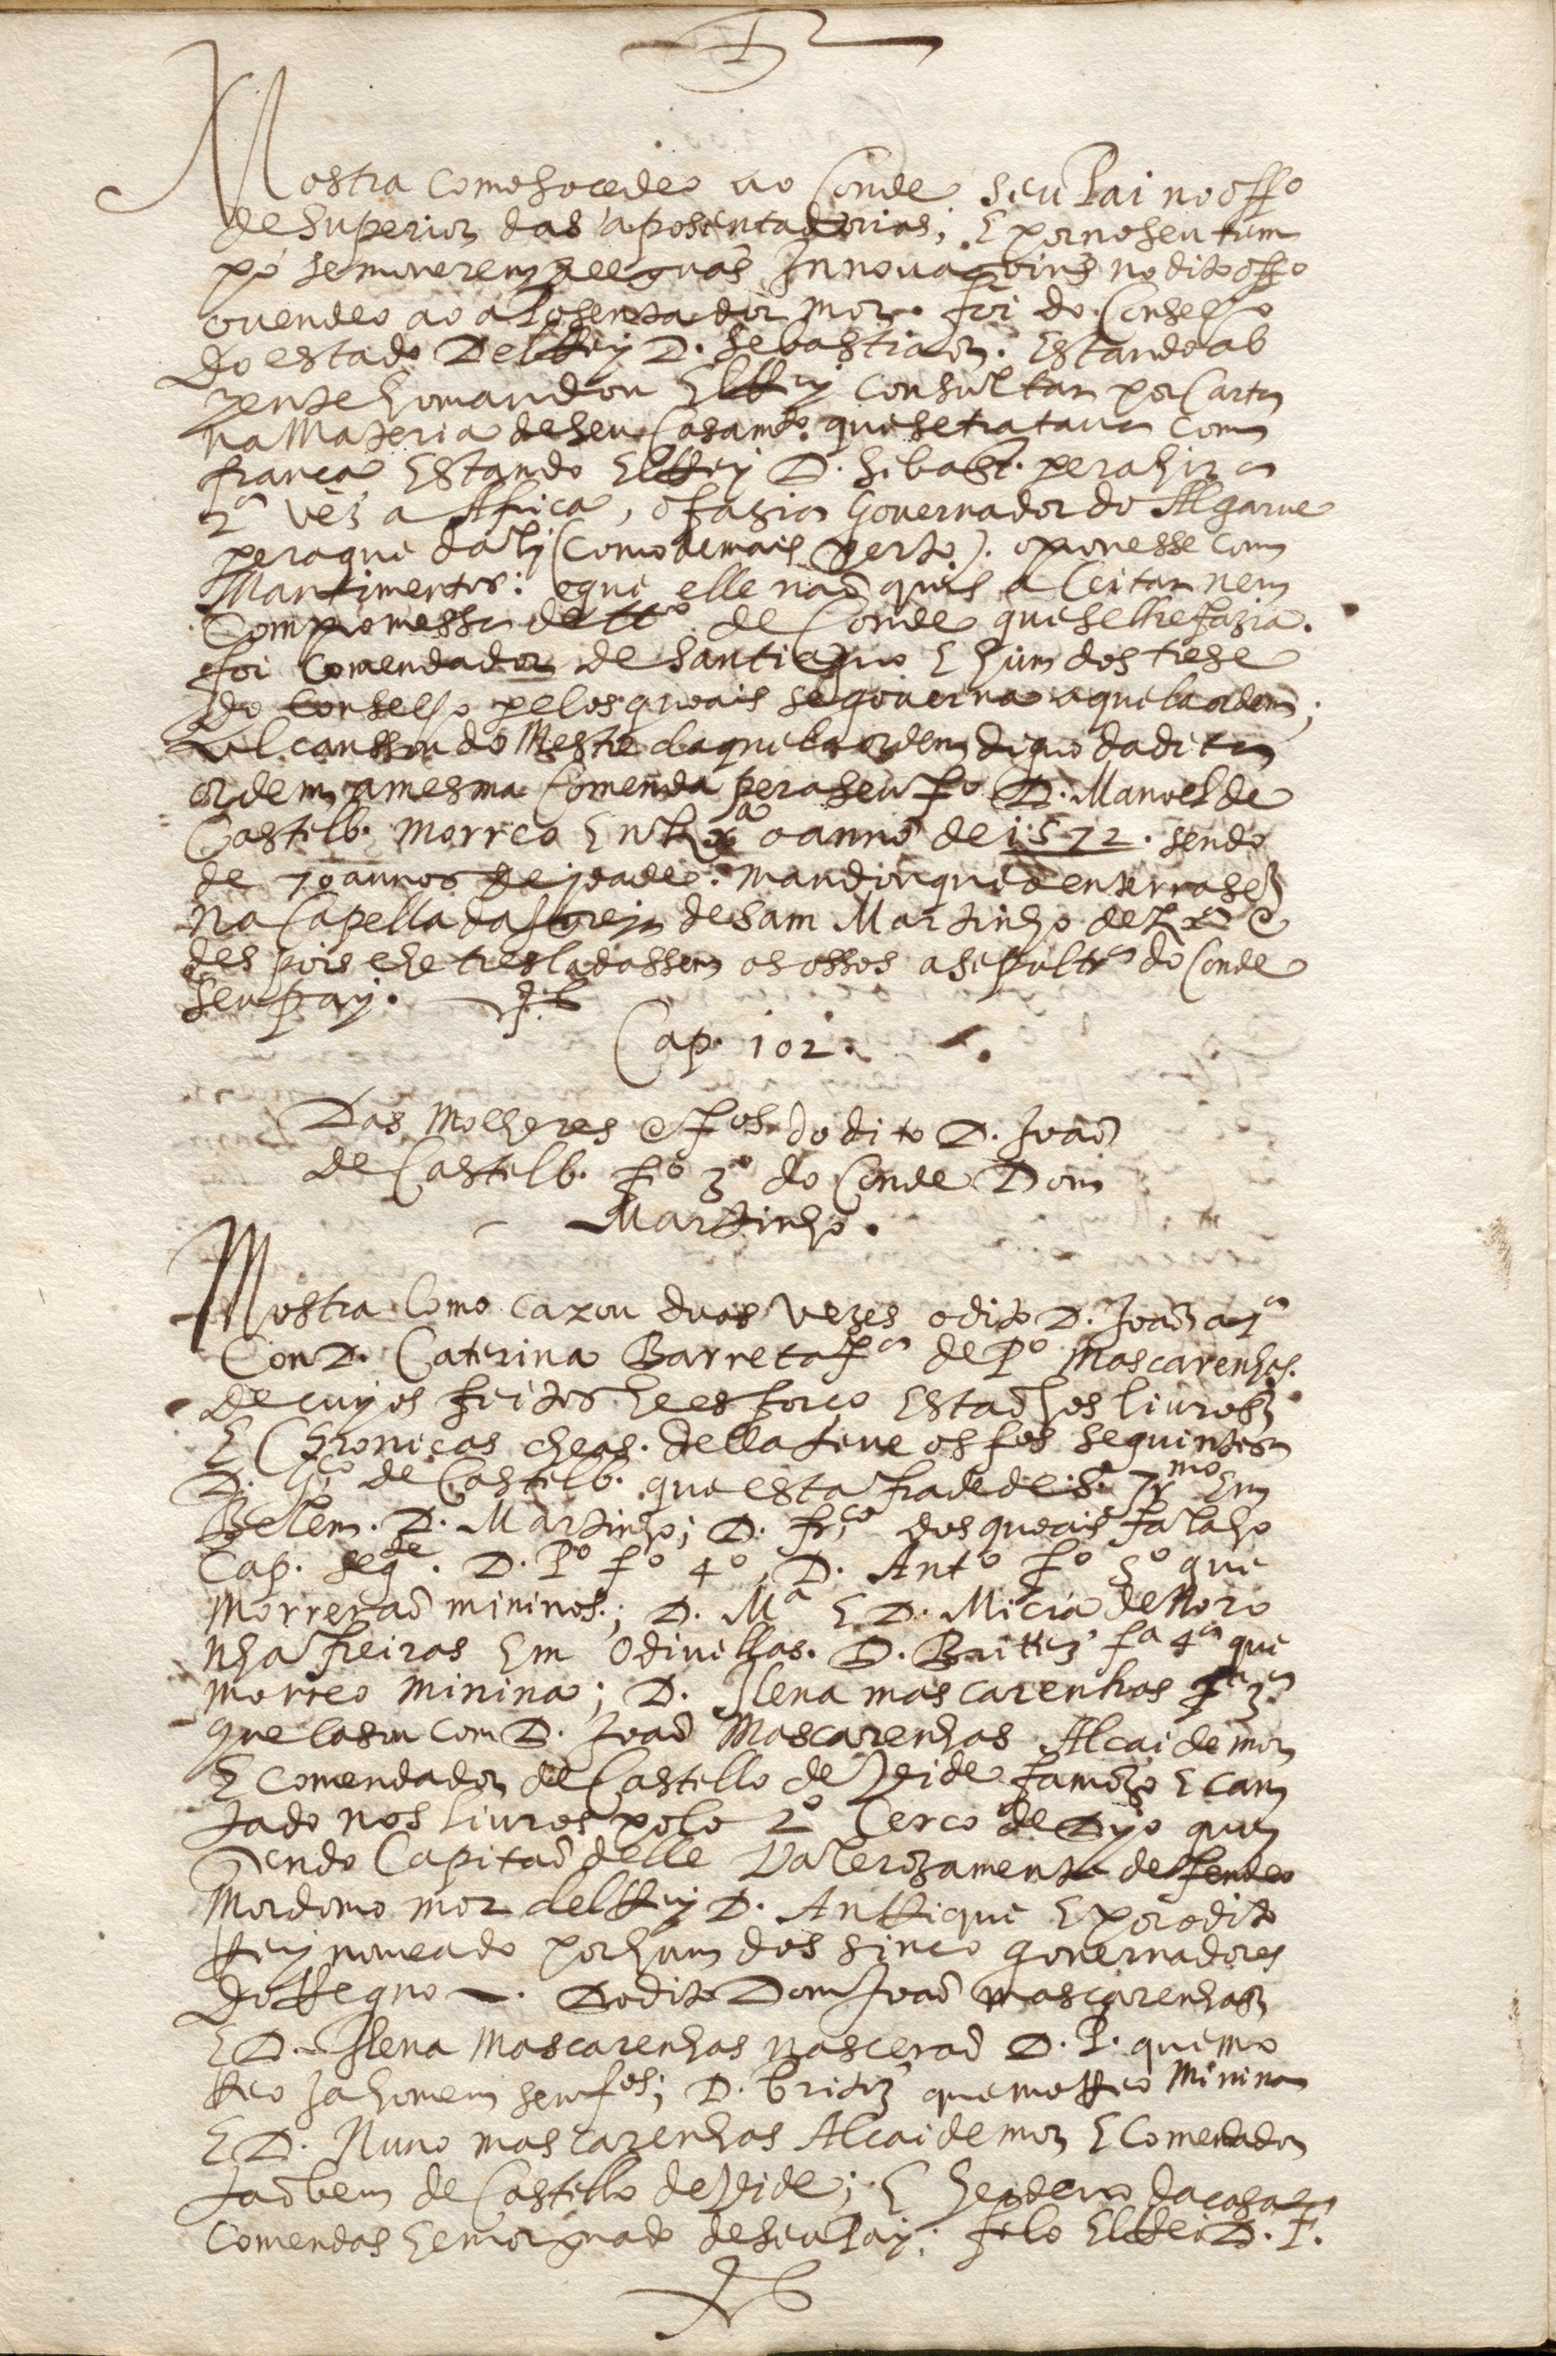 Mostra como socedeo ao Conde seu Pai no offº
de superior das aposentadorias; E por no seu tem
po se moverem algũas Innovaçoins no dito offº
o vendeo ao aPosentador mor. foi do Conselho
do estado DelRey D. Sebastiaõ. Estando ab
zente ho mandou ElRey consultar por Carta
na Materia de seu Casamto. que se tratava com
frança Estando ElRey D. Sebast. pera hir a
2ª vés a Africa, o fazia Governador do Algarve
pera que daly (como de mais perto). o provesse com
Mantimentos: o que elle naõ quis aceitar nem
Com promessa de tto de Conde que se lhe fazia.
foi Comendador de Santiaguo E hum dos treze
do Conselho pelos quoais se governa aquella ordem;
Alcanssou do Mestre daquella ordem diguo da dita
ordem a mesma Comenda pera seu fº D. Manoel de
Castelb. morreo En Lxª o anno de 1572. sendo
de 70 annos de jdade. mandou que o enterrasẽ
na Capella da Igreja de Sam Martinho de Lxª e
des pois lhe tresladassem os ossos a sepultrª do Conde
seu pay.
Cap. 102.
Das Molheres e fos. do dito D. Joaõ
de Castelb. fº 3º do Conde Dom
Martinho.
Mostra Como cazou duas vezes o dito D. Joaõ a 1ª
Con D. Caterina Barreta fª de Pº Mascarenhas.
de cuyos feitos he esforço Estaõ hos livros
E Chronicas cheas. della teve os fos seguintes
D. Gº de Castelb. que esta frade de S. Jrmo Em
Belem. D. Martinho; D. frco dos quoais fala ho
Cap. seqte. D. Pº fº 4º, D. Antº fº 5º que
Morreraõ mininos.; D. Mª E D. Micia de Noro
nha freiras Em Odivellas. D. Brittez fª 4ª que
morreo minina; D. Ilena mascarenhas fª 3ª
que Casou com D. Joaõ Mascarenhas Alcaide mor
E comendador de Castello de Vide famozo E can
tado nos livros polo 2º Cerco de Dyo que
sendo Capitaõ delle Valerozamente deffendeo
Mordomo mor delRey D. AnRique E por o dito
Rey nomeado por hum dos sinco governadores
do Regno. Do dito Dom Joaõ mascarenhas
E D. Ilena Mascarenhas nasceraõ D. P. que mo
Reo ja homem sem fos; D. britiz que moRReo Minina
E D. Nuno mascarenhas Alcaide mor E Comendador
taõbem de Castello de Vide; E herdeiro da casa e
Comendas E morguado de seu Pay; felo ElRei D. F.